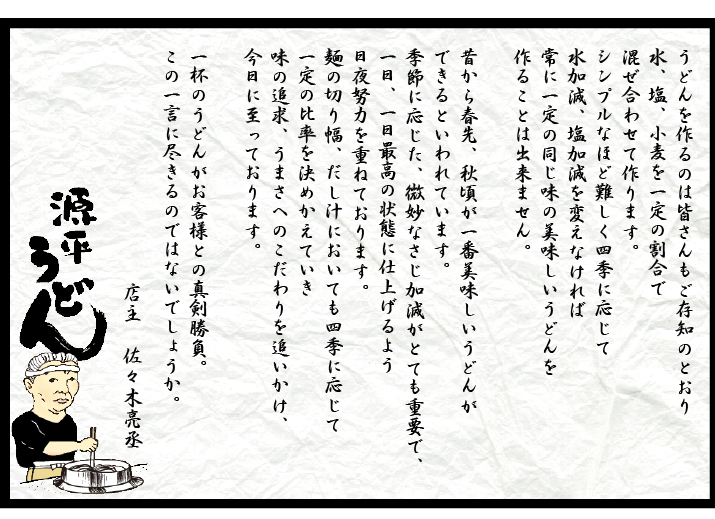 うどんを作るのは皆さんもご存知のとおり
水、塩、小麦を一定の割合で
混ぜ合わせて作ります。
シンプルなほど難しく四季に応じて
水加減、塩加減を変えなければ
常に一定の同じ味の美味しいうどんを
作ることは出来ません。
昔から春先、秋頃が一番美味しいうどんが
できるといわれています。
季節に応じた、微妙なさじ加減がとても重要で、
一日、一日最高の状態に仕上げるよう
日夜努力を重ねております。
麺の切り幅、だし汁においても四季に応じて
一定の比率を決めかえていき
味の追求、うまさへのこだわりを追いかけ、
今日に至っております。
一杯のうどんがお客様との真剣勝負。
この一言に尽きるのではないでしょうか。
店主 佐々木亮丞
源平
うどん